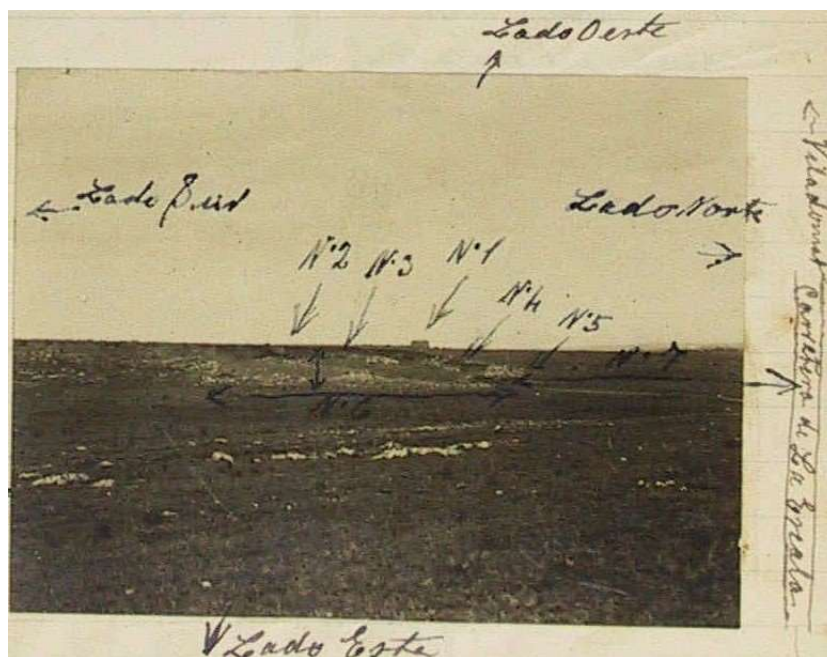 Lado Oeste
Lado Sur
Lado Norte
Nº2
Nº3
Nº1
Nº4
Nº5
Nº7
Nº6
Lado Este
Viladomat Carretera de La Escala